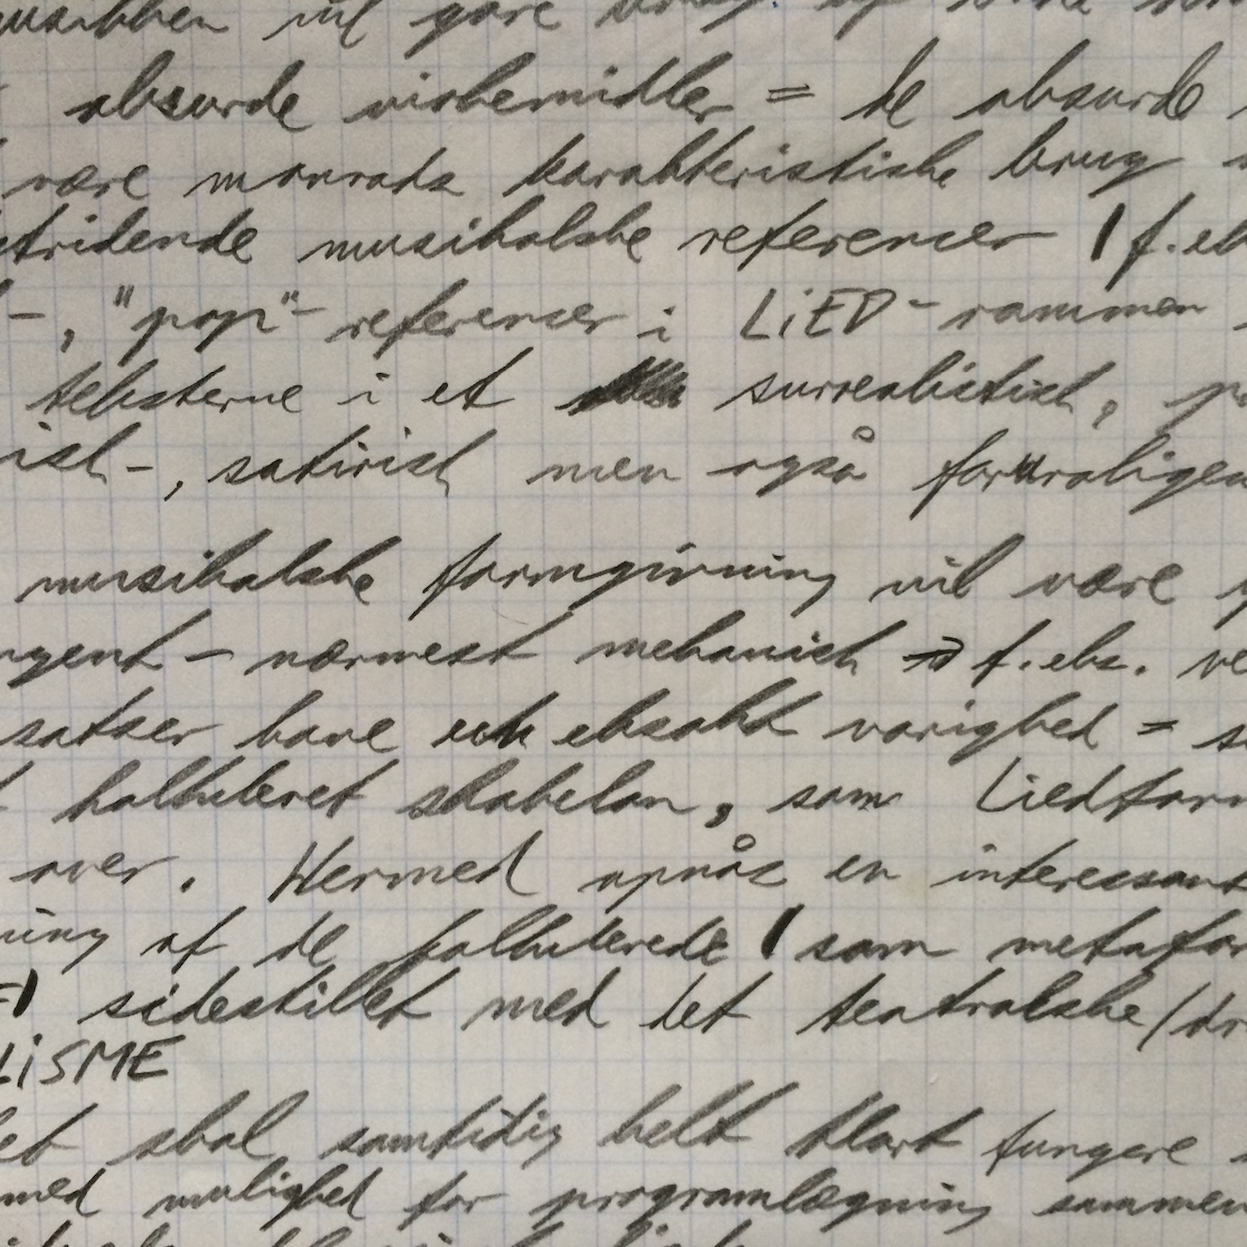 musikken vil gøre brug af
absurde virkemidler = de absurde
være monrads karakteristiske brug
stridende musikalske referencer (f.eks
-, "pop"- referencer i LiED-rammen
teksterne i et surrealistisk,
isk-, satirisk men også foruroligen
musikalske formgivning vil være
ngent - nærmest mekanisk => f.eks.
satser have exakt varighed =
kalkuleret skabelon, som Liedfor
over. Hermed opnås en interessant
ning af de kalkulerede (som metafor
) sidestillet med det teatralske/dr
LiSME
et skal samtidig helt klart fungere
med mulighed for programlægning sammen